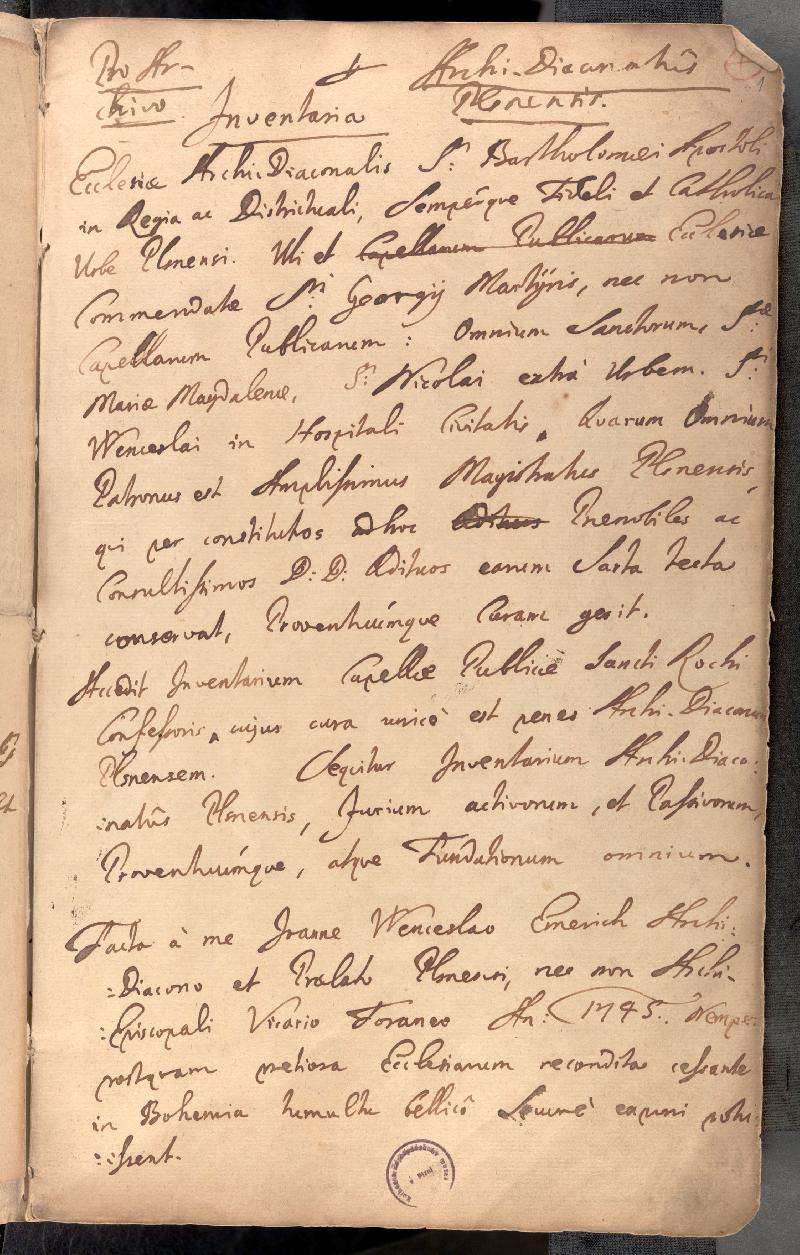 Pro Ar- & Archi-Diaconatûs
chivo Inventaria Plsnensis.
Ecclesiæ Archi-Diaconalis S: Bartholomæi Apostoli
in Regia ac Districtuali, Semperque Fideli et Catholica
Urbe Plsnensi. Uti et Capellarum Publicarum Ecclesiæ
Commendatæ Sti Georgij Martÿris, nec non
Capellarum Publicarum: Omnium Sanctorum, Stæ:
Mariæ Magdalenæ, S: Nicolai extrà Urbem. Sti
Wenceslai in Hospitali Civitatis, Quarum Omnium
Patronus est Amplissimus Magistratus Plsnensis,
qui per constitutos ad hoc Ædituos Prænobiles ac
Consultissimos D: D: Ædituos earum Sarta tecta
conservat, Proventuúmque Curam gerit.
Accedit Inventarium Capellæ Publicæ Sancti Rochi
Confessoris, cujus cura unicè est penes Archi-Diaconum
Plsnensem. Sequitur Inventarium Archi-Diaco:
:natûs Plsnensis, Jurium activorum, et Passivorum,
Proventuúmque, atque Fundationum omnium.
Facta à me Joanne Wenceslao Emerich Archi:
:Diacono et Prælato Plsnensi, nec non Archi-
:Episcopali Vicario Foraneo An: 1745. Nempe:
postquam pretiosa Ecclesiarum recondita cessante
in Bohemia tumultu bellicô Securè exponi potu
:issent.